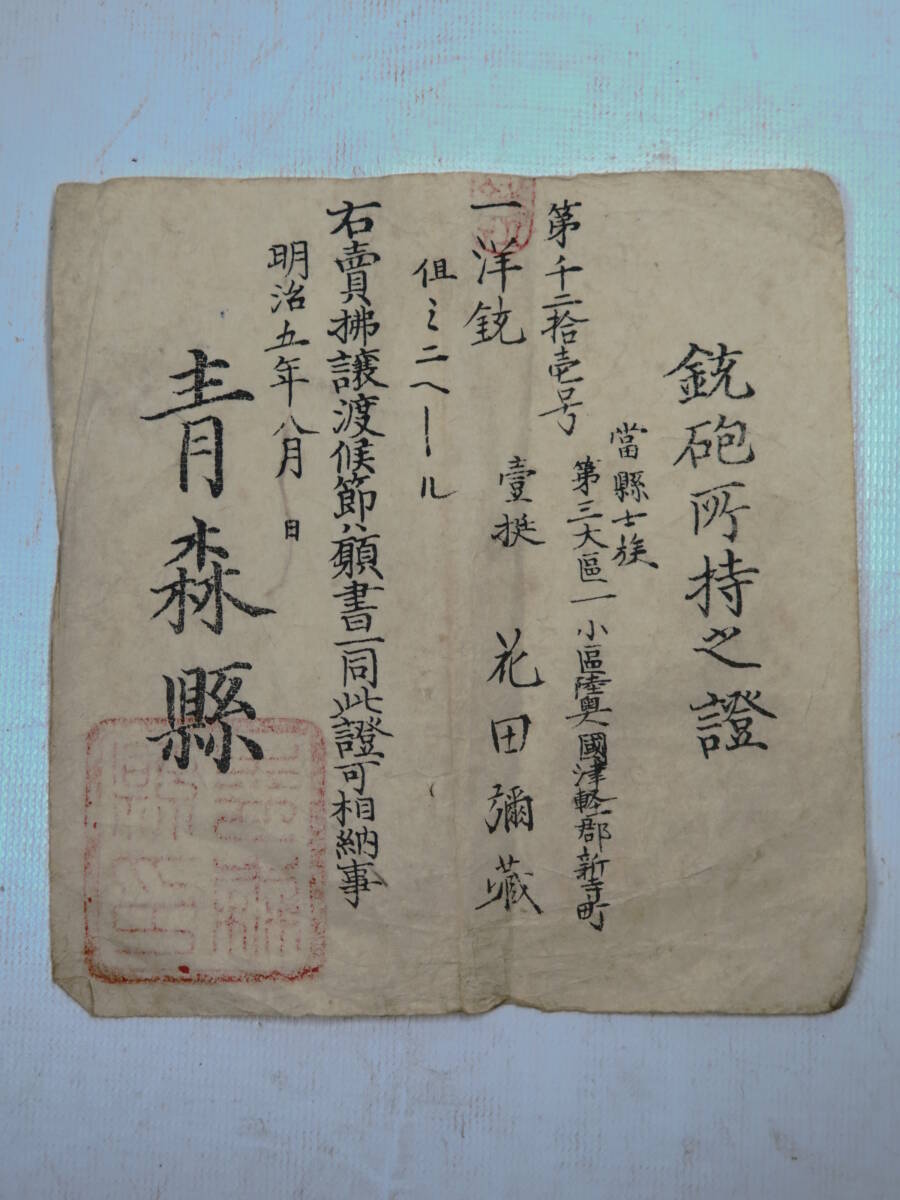 銃砲所持之證
當縣士族
第三大區一小區陸奥國津軽郡新寺町
第千二拾壱号
花田彌藏
一洋銃 壹挺
但ミニヘール
右賣拂譲渡候節ハ願書一同此證可相納事
明治五年八月 日
青森縣